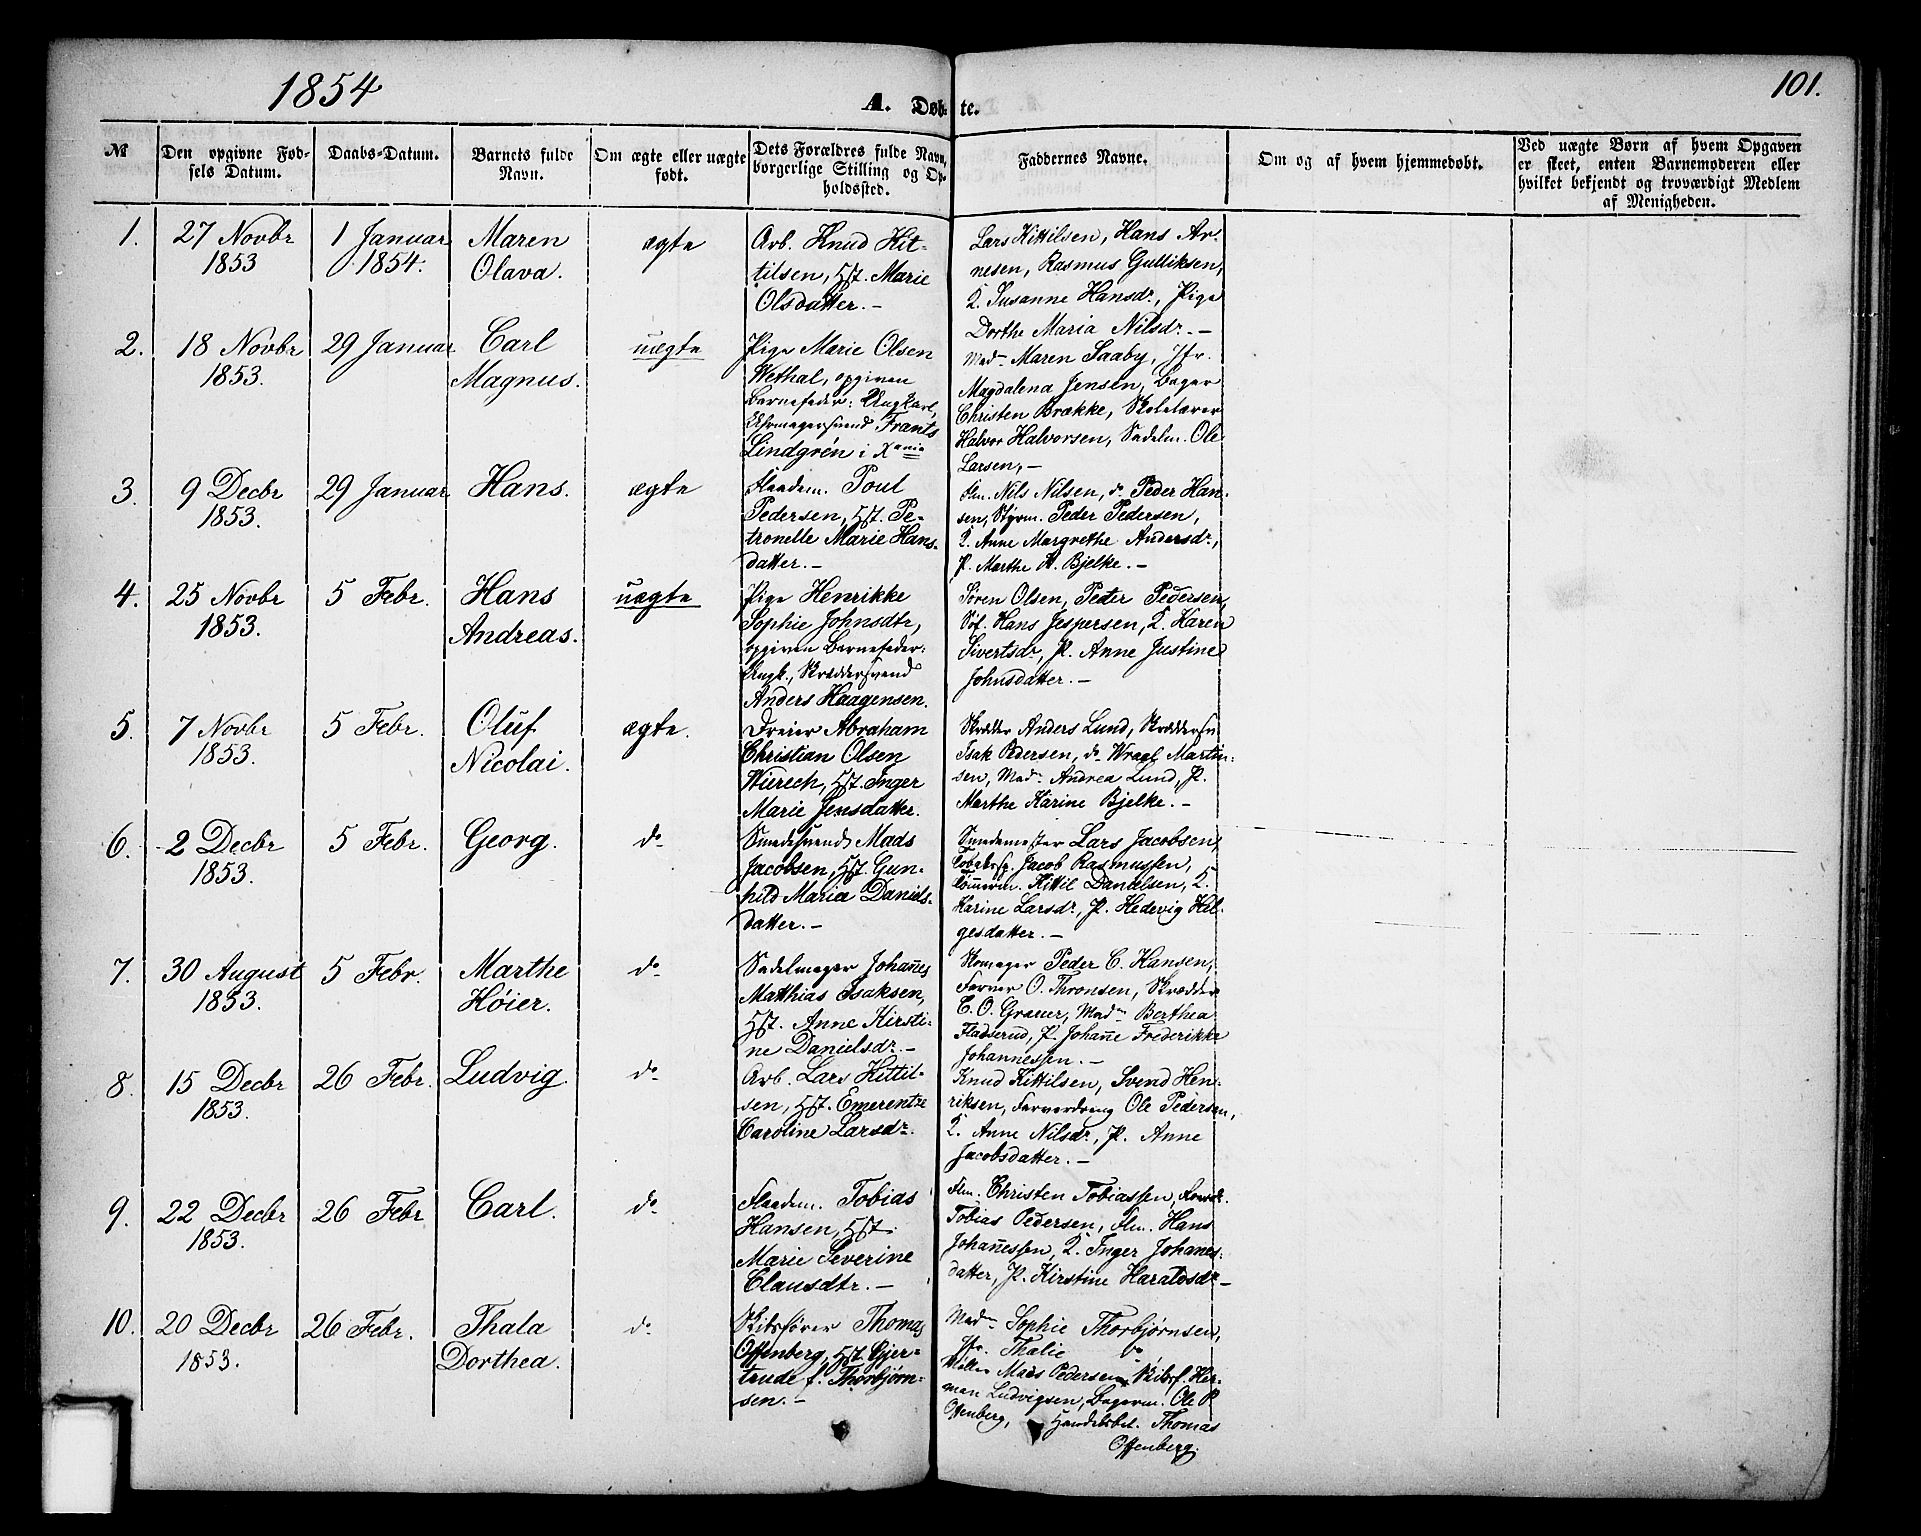 1854
A. Døbte.
101.
№
Den opgivne Fød-
sels Datum.
Daabs-Datum.
Barnets fulde
Navn.
Om ægte eller uægte
født.
Dets Forældres fulde Navn,
borgerlige Stilling og Op-
holdssted.
Faddernes Navne.
Om og af hvem hjemmedøbt.
Ved uægte Børn af hvem Opgaven
er skeet, enten Barnemoderen eller
hvilket bekjendt og troværdigt Medlem
af Menigheden.
1.
27 Novbr
1853
1 Januar
1854.
Maren
Olava.
ægte
Arb. Knud Kit-
tilsen, Hst. Marie
Olsdatter. –
Lars Kittilsen, Hans Ar-
nesen, Rasmus Gulliksen,
K. Susanne Hansdr., Pige
Dorthe Maria Nilsdr. –
2.
18 Novbr
1853.
29 Januar
Carl
Magnus.
uægte
Pige Marie Olsen
Wethal, opgiven
Barnefader: Ungkarl,
Uhrmagersvend Frants
Lindgrén i Xania
Mad. Maren Saaby, Jfr.
Magdalena Jensen, Bager
Christen Brække, Skolelærer
Halvor Halvorsen, Sadelm. Ole
Larsen, –
3.
9 Decbr
1853.
29 Januar
Hans.
ægte
Flaadem. Poul
Pedersen, Hst. Pe-
tronelle Marie Hans-
datter. –
Flm. Nils Nilsen, do Peder Han-
sen, Styrm. Peder Pedersen,
K. Anne Margrethe Andersdr.,
P. Marthe H. Bjelke. –
4.
25 Novbr
1853.
5 Febr.
Hans
Andreas.
uægte
Pige Henrikke
Sophie Johnsdtr,
opgiven Barnefader:
Ungk., Skræddersvend
Anders Haagensen.
Søren Olsen, Peter Pedersen,
Søf. Hans Jespersen, K. Karen
Sivertsdr, P. Anne Justine
Johnsdatter. –
5.
7 Novbr
1853.
5 Febr.
Oluf
Nicolai.
ægte.
Dreier Abraham
Christian Olsen
Wiirech, Hst. Inger
Marie Jensdatter.
Skrædder Anders Lund, Skræddersv.
Isak Pedersen, do Wrael Martin-
sen, Mad. Andrea Lund, P.
Marthe Karine Bjelke. –
6.
2 Decbr
1853.
5 Febr.
Georg.
do
Smedesvend Mads
Jacobsen, Hst. Gun-
hild Maria Daniels-
datter. –
Smedemester Lars Jacobsen,
Tobaksp. Jacob Rasmussen,
Tømerm. Kittil Danielsen, K.
Karine Larsdr, P. Hedevig Hel-
gesdatter. –
7.
30 August
1853.
5 Febr.
Marthe
Høier.
do
Sadelmager Johannes
Matthias Isaksen,
Hst. Anne Kirsti-
ne Danielsdr. –
Skomager Peder C. Hansen,
Farver O. Thronsen, Skrædder
C. O. Grauer, Mad. Berthea
Fladserud, P. Johanne Frederikke
Johannessen. –
8.
15 Decbr
1853.
26 Febr.
Ludvig.
do
Arb. Lars Kittil-
sen, Hst. Emerentse
Caroline Larsdr.
Knud Kittilsen, Svend Hen-
riksen, Farverdreng Ole Pedersen,
K. Anne Nilsdr, P. Anne
Jacobsdatter. –
9.
22 Decbr
1853.
26 Febr
Carl.
do
Flaadem. Tobias
Hansen, Hst.
Marie Severine
Clausdtr. –
Flm. Christen Tobiassen,
Tobias Pedersen, Flm. Hans
Johannessen, K. Inger Johanes-
datter, P. Kirstine Haraldsdr –
10.
20 Decbr
1853.
26 Febr.
Thala
Dorthea.
do
Skibsfører Thomas
Offenberg, Hst. Gjer-
trude f. Thorbjørn-
sen. –
Mad. Sophie Thorbjørnsen,
Jfr. Thalie do
Møller Mads Pedersen, Skibsf. Her-
man Ludvigsen, Bagerm. Ole P.
Offenberg, Handelsbet. Thomas
Offenberg.